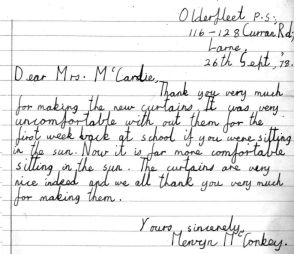 Olderfleet P.S.,
116-128 Curran Rd,
Larne,
26th Sept., '78.
Dear Mrs. McCardie,
Thank you very much
for making the new curtains. It was very
uncomfortable with out them for the
first week back at school if you were sitting
in the sun. Now it is far more comfortable
sitting in the sun. The curtains are very
nice indeed and we all thank you very much
for making them.
Yours sincerely,
Mervyn McConkey.